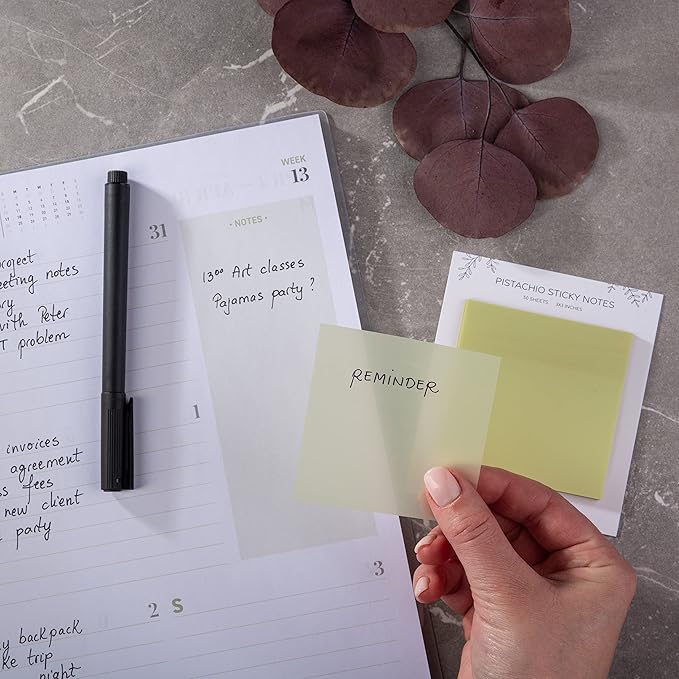 WEEK
13
31
· NOTES ·
13⁰⁰ Art classes
Pajamas party ?
eeting notes
with Peter
T problem
1
invoices
agreement
fees
new client
party
2 S
3
backpack
trip
night
REMINDER
PISTACHIO STICKY NOTES
50 SHEETS 3X3 INCHES